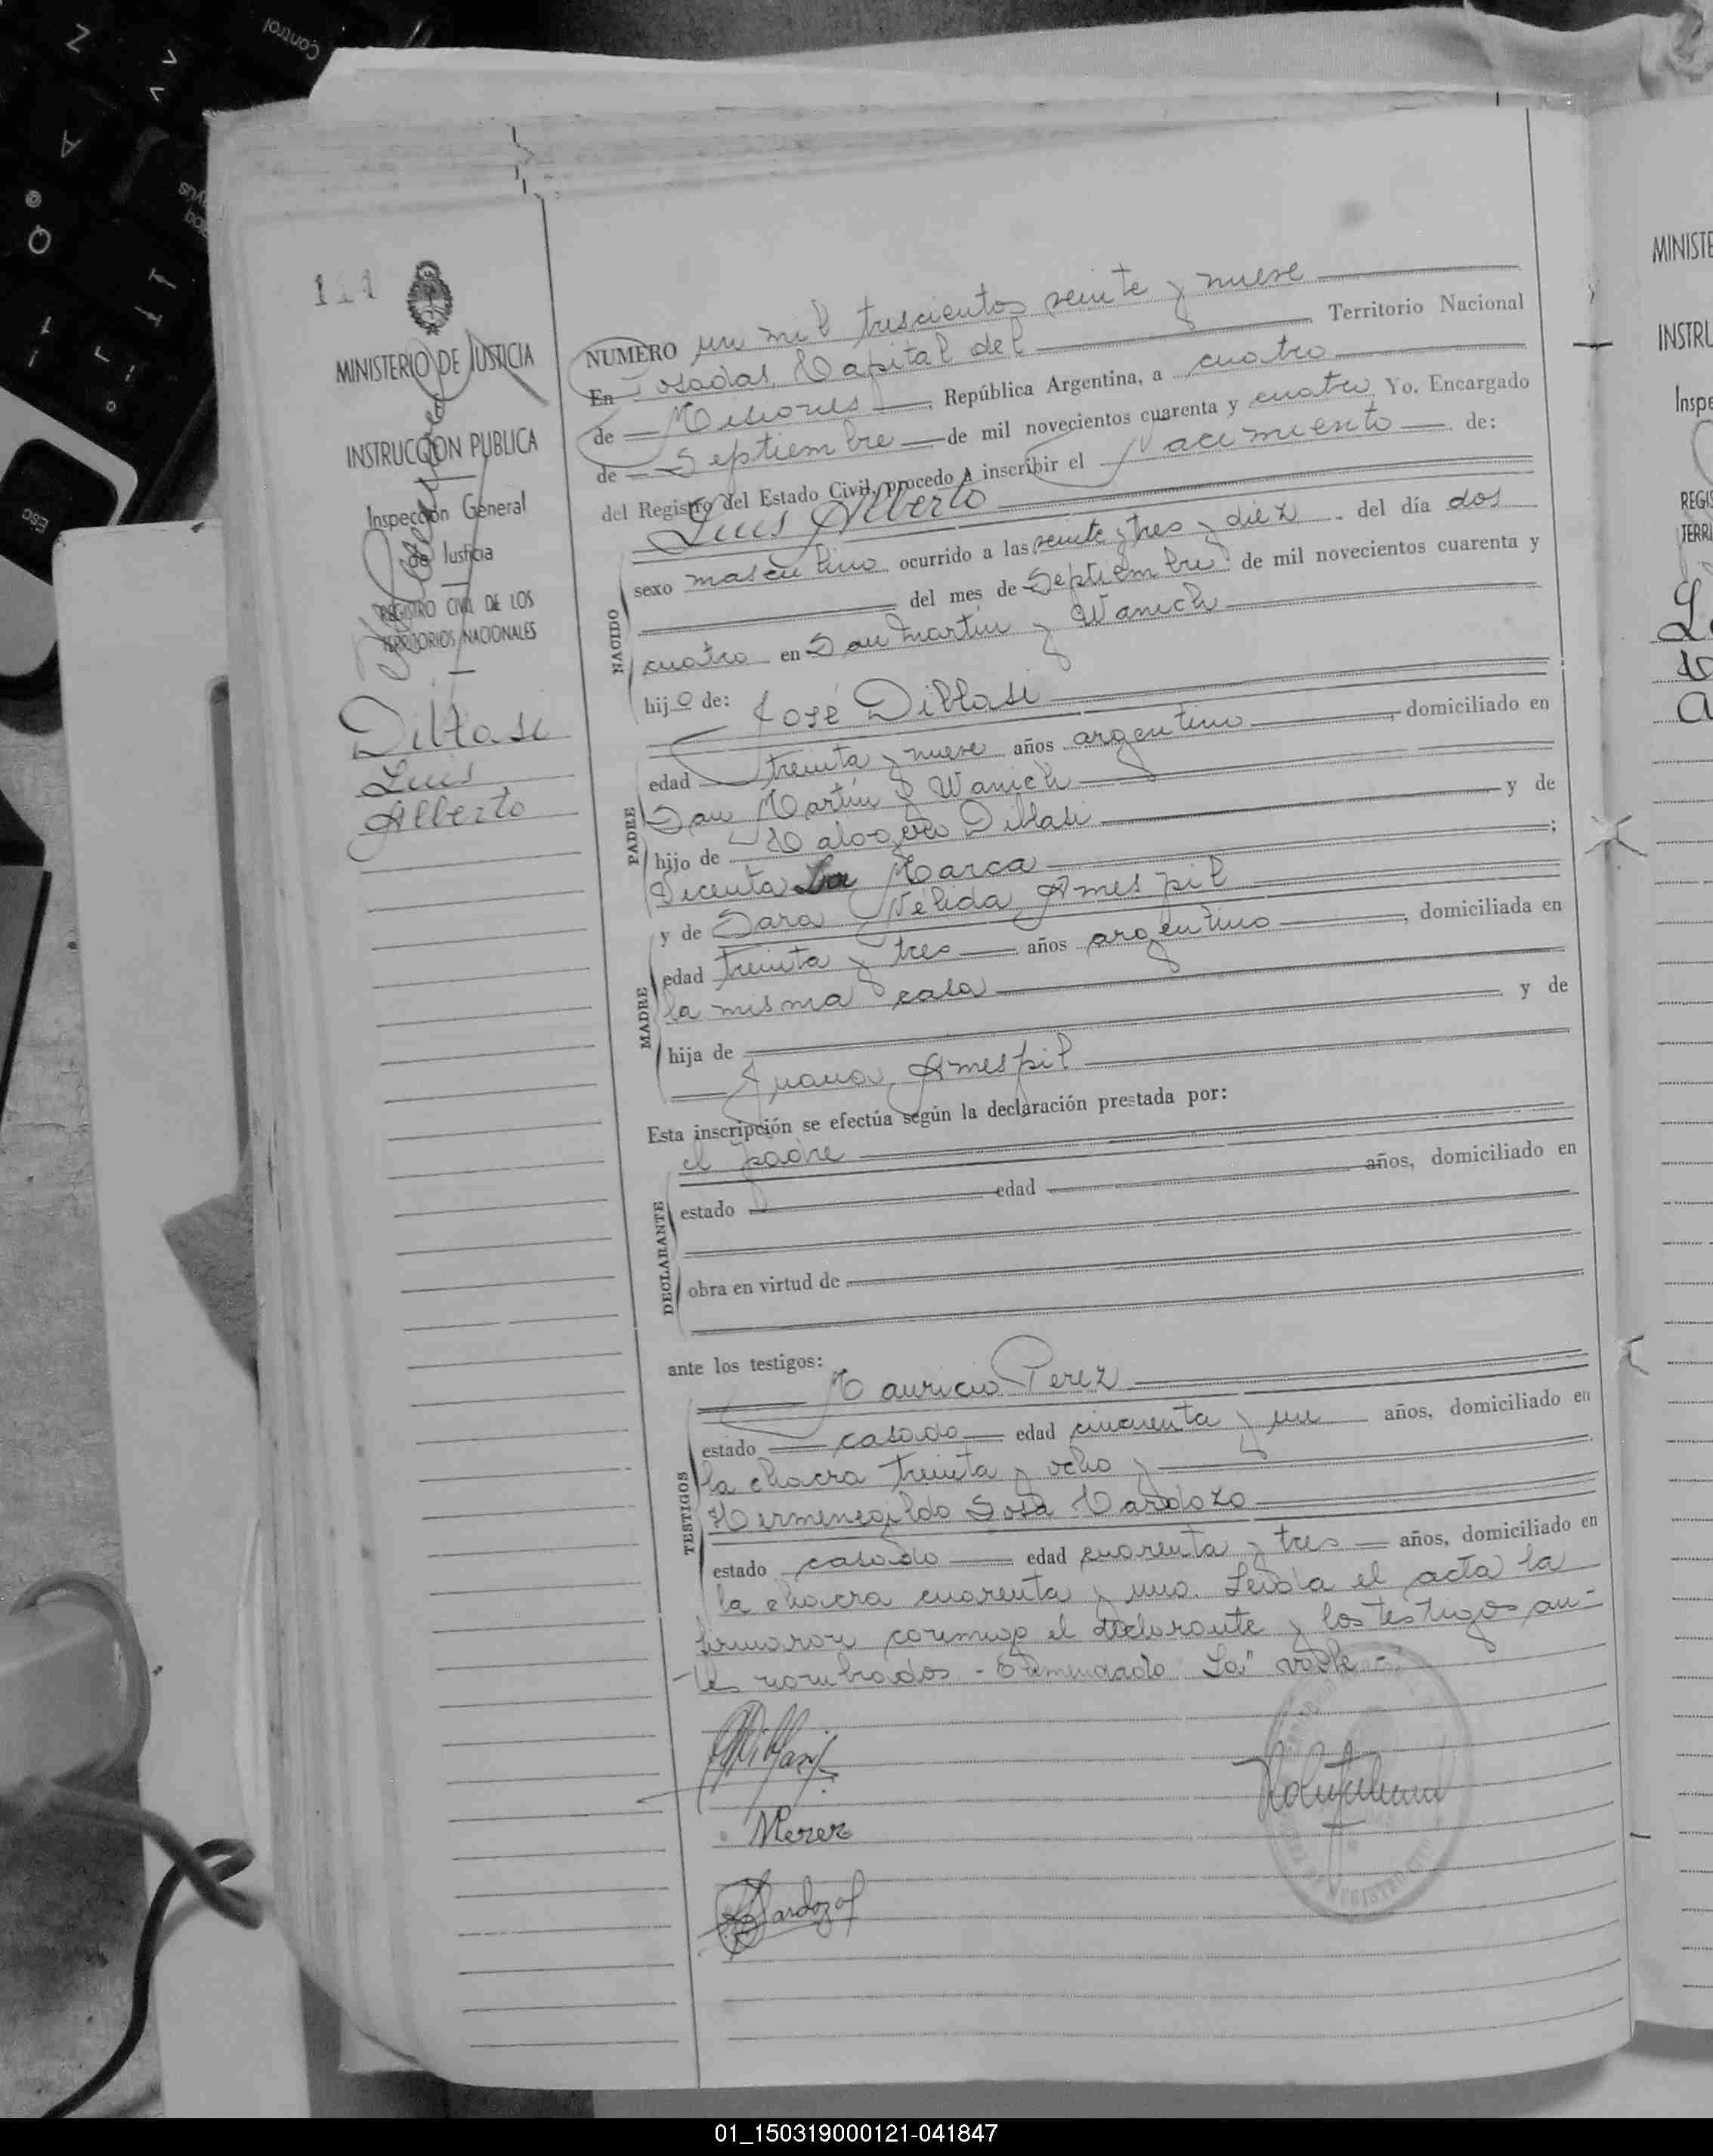 111
MINISTERIO DE JUSTICIA
INSTRUCCION PUBLICA
Inspección General
de Justicia
REGISTRO CIVIL DE LOS
TERRITORIOS NACIONALES
Diblasi
Luis
Alberto
NUMERO un mil trescientos veinte y nueve
En Posadas, Capital del Territorio Nacional
de Misiones, República Argentina, a cuatro
de Septiembre de mil novecientos cuarenta y cuatro Yo. Encargado
del Registro del Estado Civil, procedo a inscribir el Nacimiento de:
Luis Alberto
NACIDO
sexo masculino ocurrido a las veinte y tres y diez del día dos
del mes de Septiembre de mil novecientos cuarenta y
cuatro en San Martín y Wanich
hijo de: José Diblasi
PADRE
edad treinta y nueve años argentino, domiciliado en
San Martín y Wanich
hijo de Calogero Diblasi y de
Vicenta La Marca;
y de Sara Nelida Amespil
MADRE
edad treinta y tres años argentino, domiciliada en
la misma casa
hija de y de
Juana Amespil
Esta inscripción se efectúa según la declaración prestada por:
el padre
DECLARANTE
estado edad años, domiciliado en
obra en virtud de
ante los testigos:
Mauricio Perez
TESTIGOS
estado casado edad cincuenta y un años, domiciliado en
la chacra treinta y ocho y
Hermenegildo Sosa Cardozo
estado casado edad cuarenta y tres años, domiciliado en
la chacra cuarenta y uno. Leida el acta la
firmaron conmigo el declarante y los testigos an-
tes nombrados - Enmendado: La" vale -
Diblasi
MPerez
Cardozo
MINISTE
INSTRU
Inspe
REGIS
TERRI
01_150319000121-041847